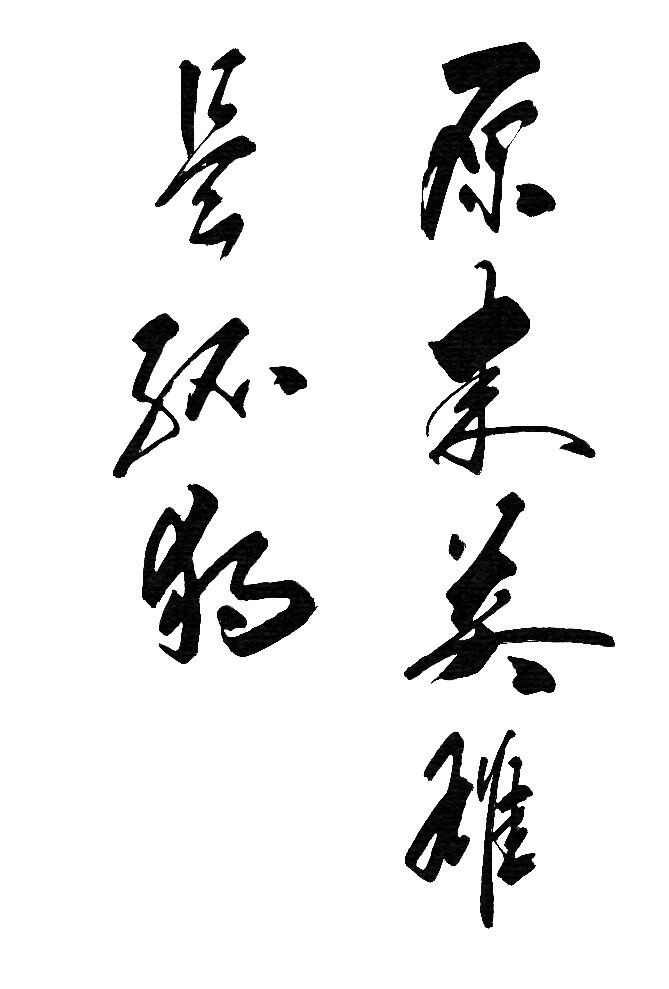 原来英雄
是孤独